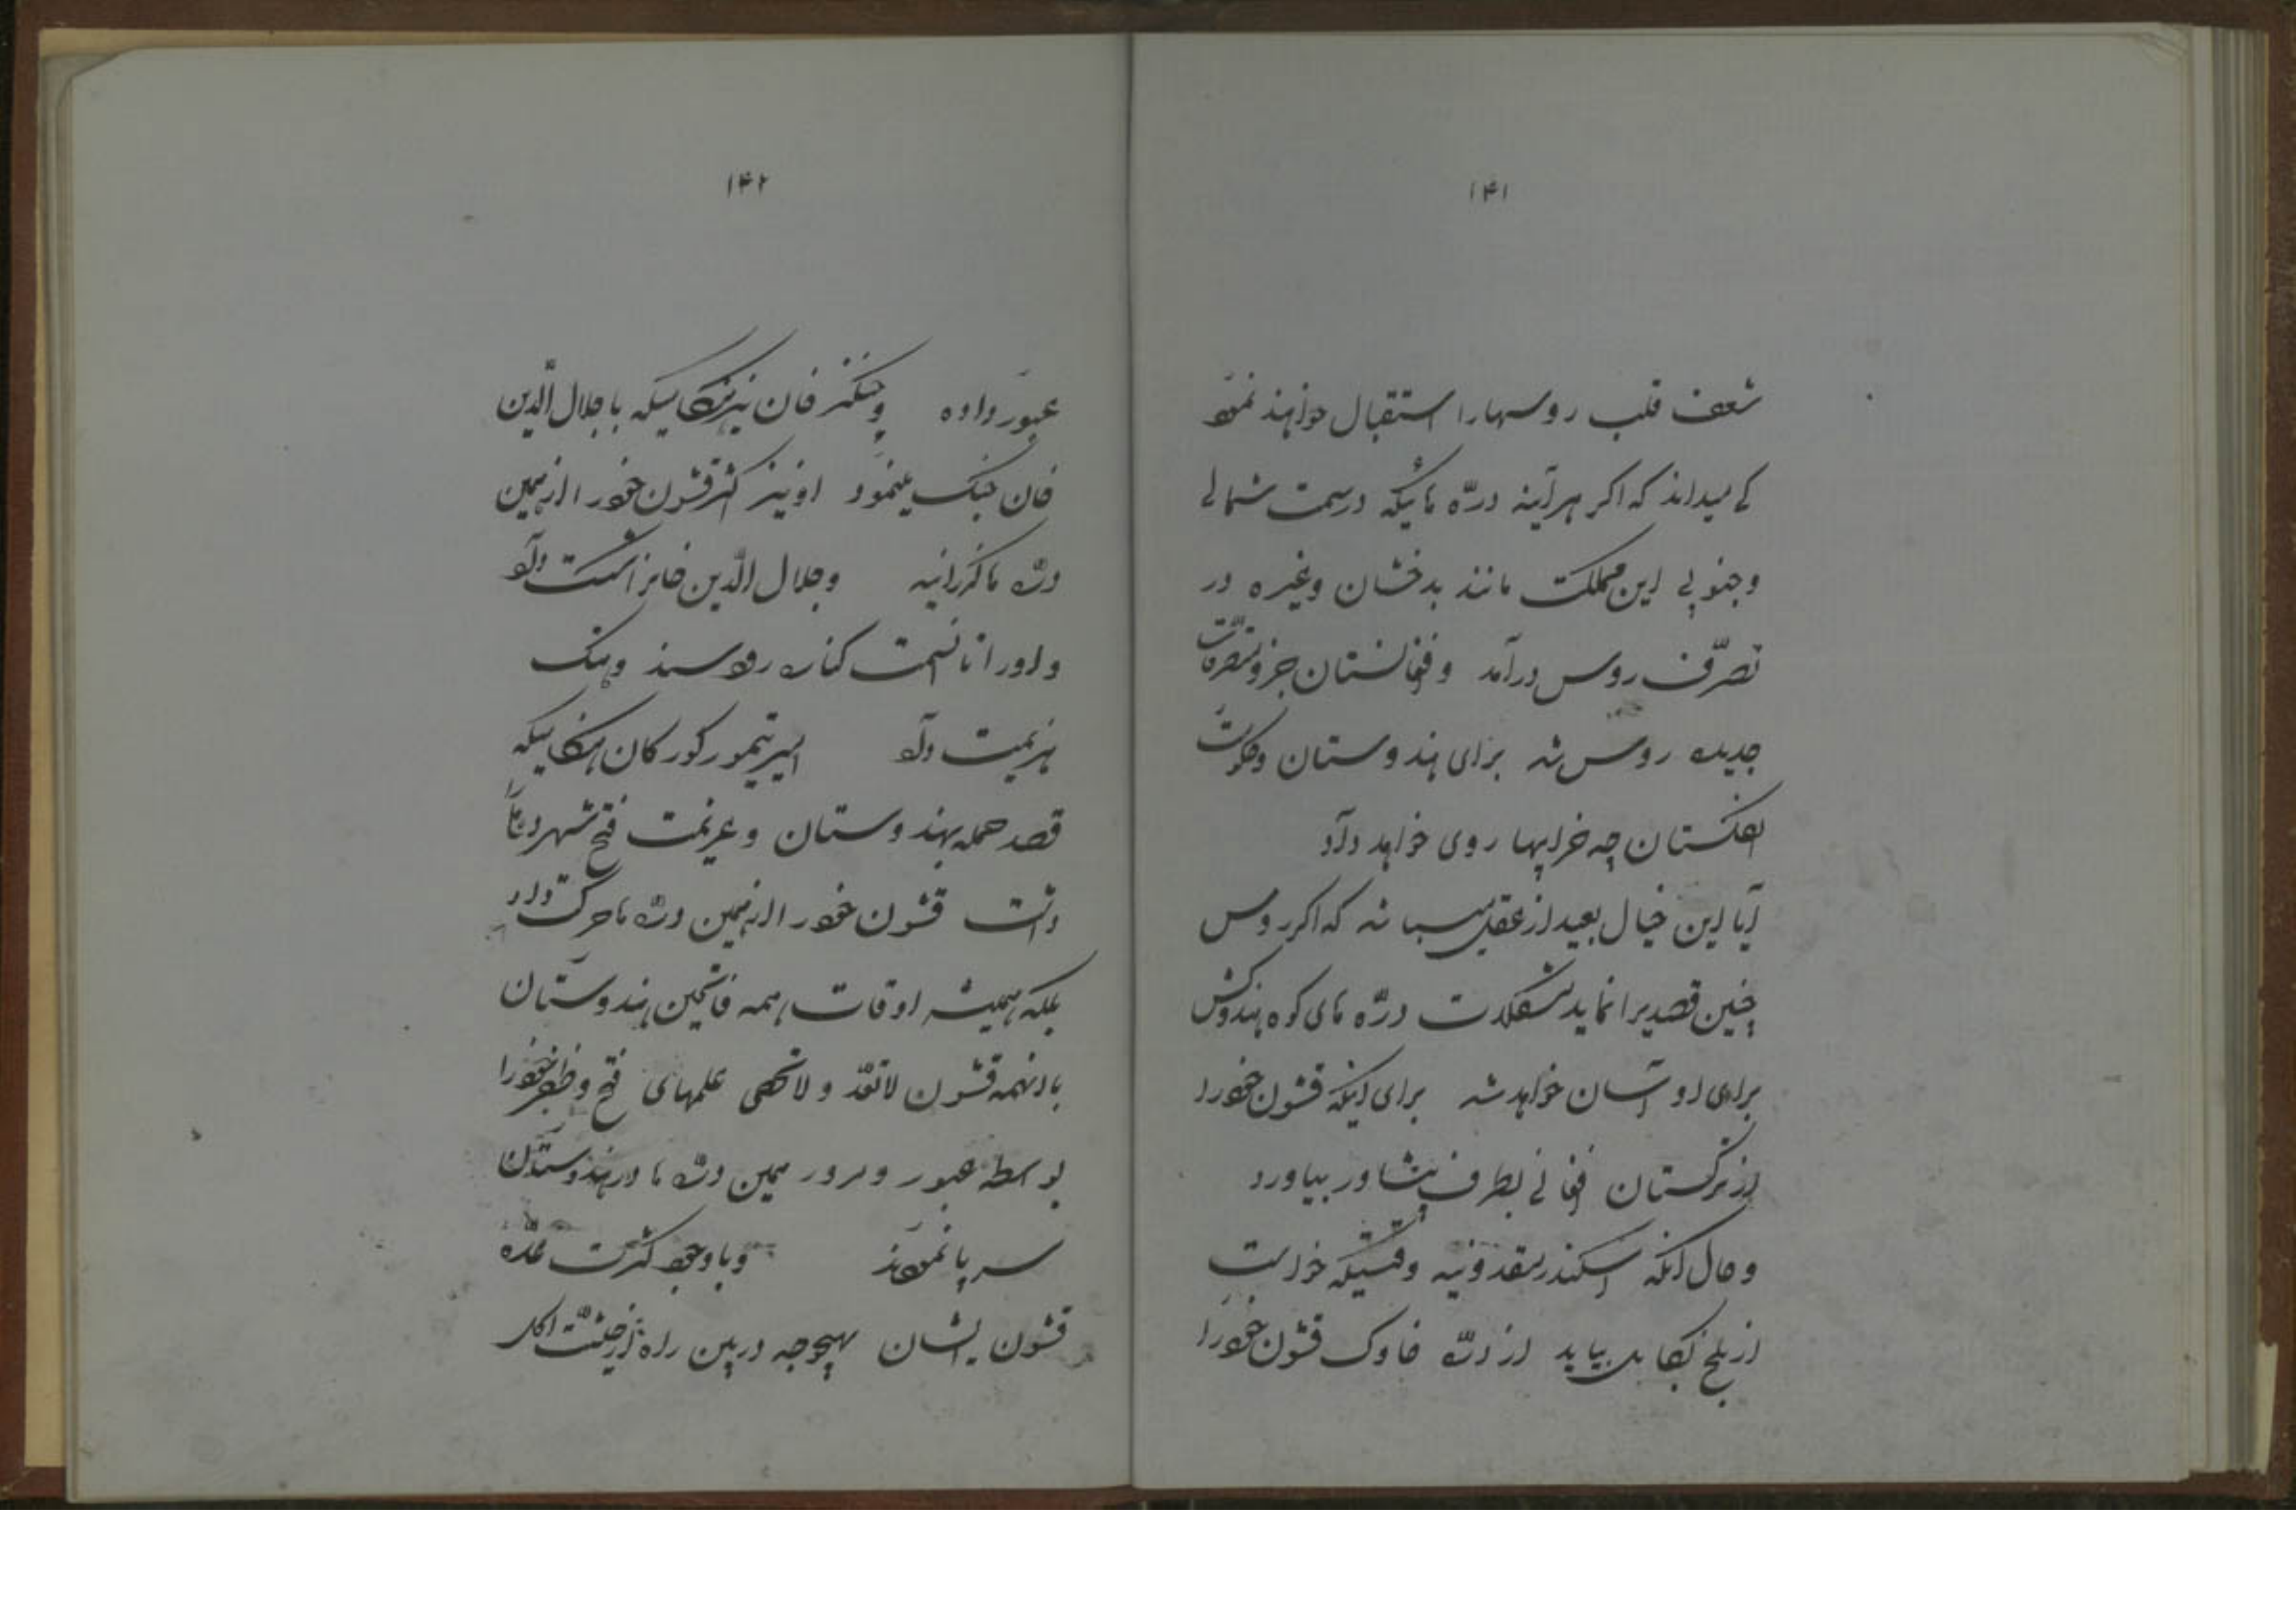 ۱۴۱
شعف قلب روسهارا استقبال خواهند نمود
که میداند که اکر هرآینه درّه هائیکه درسمت شمالی
وجنوبی این مملکت مانند بدخشان وغیره در
تصرّف روس درآمد وافغانستان جزو تصرّفات
جدیده روس شد برای هندوستان وحکومت
انکلستان چه خرابیها روی خواهد داد
آیا این خیال بعید از عقل میباشد که اکر روس
چنین قصدیرا نماید مشکلات درّه های کوه هندوکش
برای او آسان خواهد شد برای اینکه قشون خود را
از ترکستان افغانی بطرف پیشاور بیاورد
وحال آنکه اسکندر مقدونیه وقتیکه خواست
از بلخ بکابل بیاید از درّه خاوک قشون خودرا
۱۴۲
عبور داده وچنکیز خان نیز هنکامیکه با جلال الدّین
خان جنک مینمود او نیز اکثر قشون خود را از همین
درّه ها کذرانیده وجلال الدّین خانرا شکست داد
و اورا تا قسمت کناره رود سند وهتک
هزیمت داد امیر تیمور کورکان هنکامیکه
قصد حمله بهندوستان و عزیمت فتح شهر دهلی را
داشت قشون خود را از همین درّه ها حرکت داد
بلکه همیشه اوقات همه فاتحین هندوستان
با اینهمه قشون لاتعدّ و لاتحصی علمهای فتح وظفر خودرا
بواسطه عبور ومرور همین درّه ها در هندوستان
سرپا نمودند وبا وجود کثرت عدّه
قشون ایشان بهیچوجه در بین راه از حیثیّت اکل